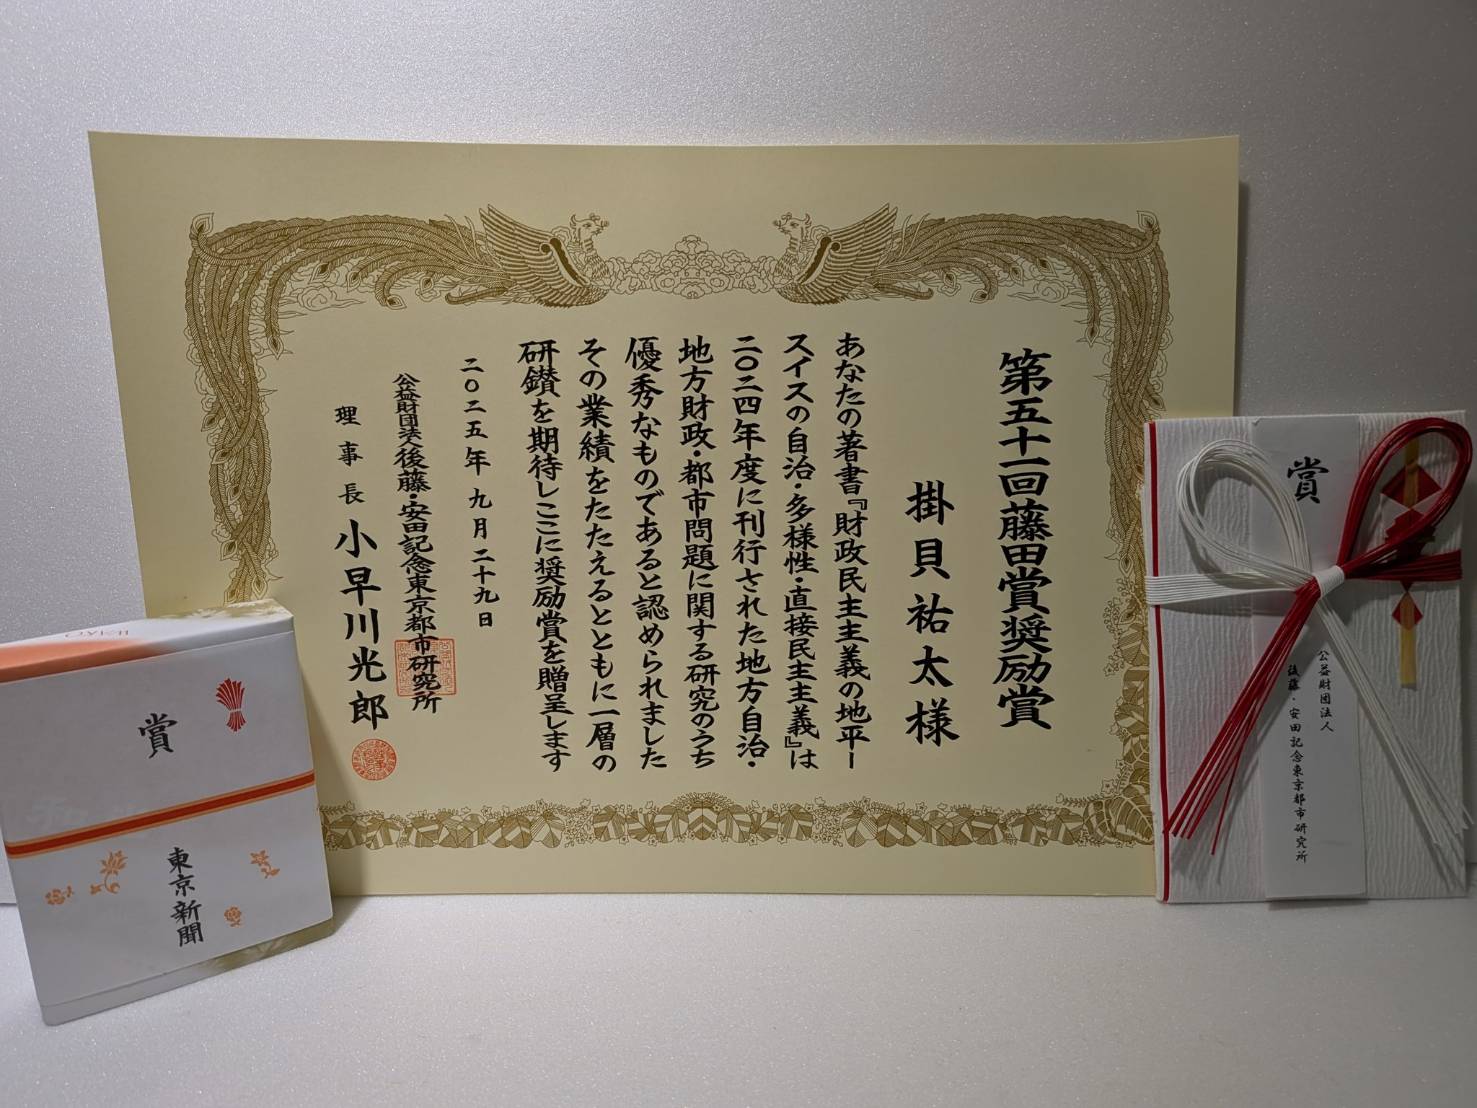 第五十一回藤田賞奨励賞
掛貝祐太様
あなたの著書『財政民主主義の地平ー
スイスの自治・多様性・直接民主主義』は
二〇二四年度に刊行された地方自治・
地方財政・都市問題に関する研究のうち
優秀なものであると認められました
その業績をたたえるとともに一層の
研鑚を期待しここに奨励賞を贈呈します
二〇二五年九月二十九日
公益財団法人後藤・安田記念東京都市研究所
理事長 小早川光郎
賞
東京新聞
賞
公益財団法人
後藤・安田記念東京都市研究所